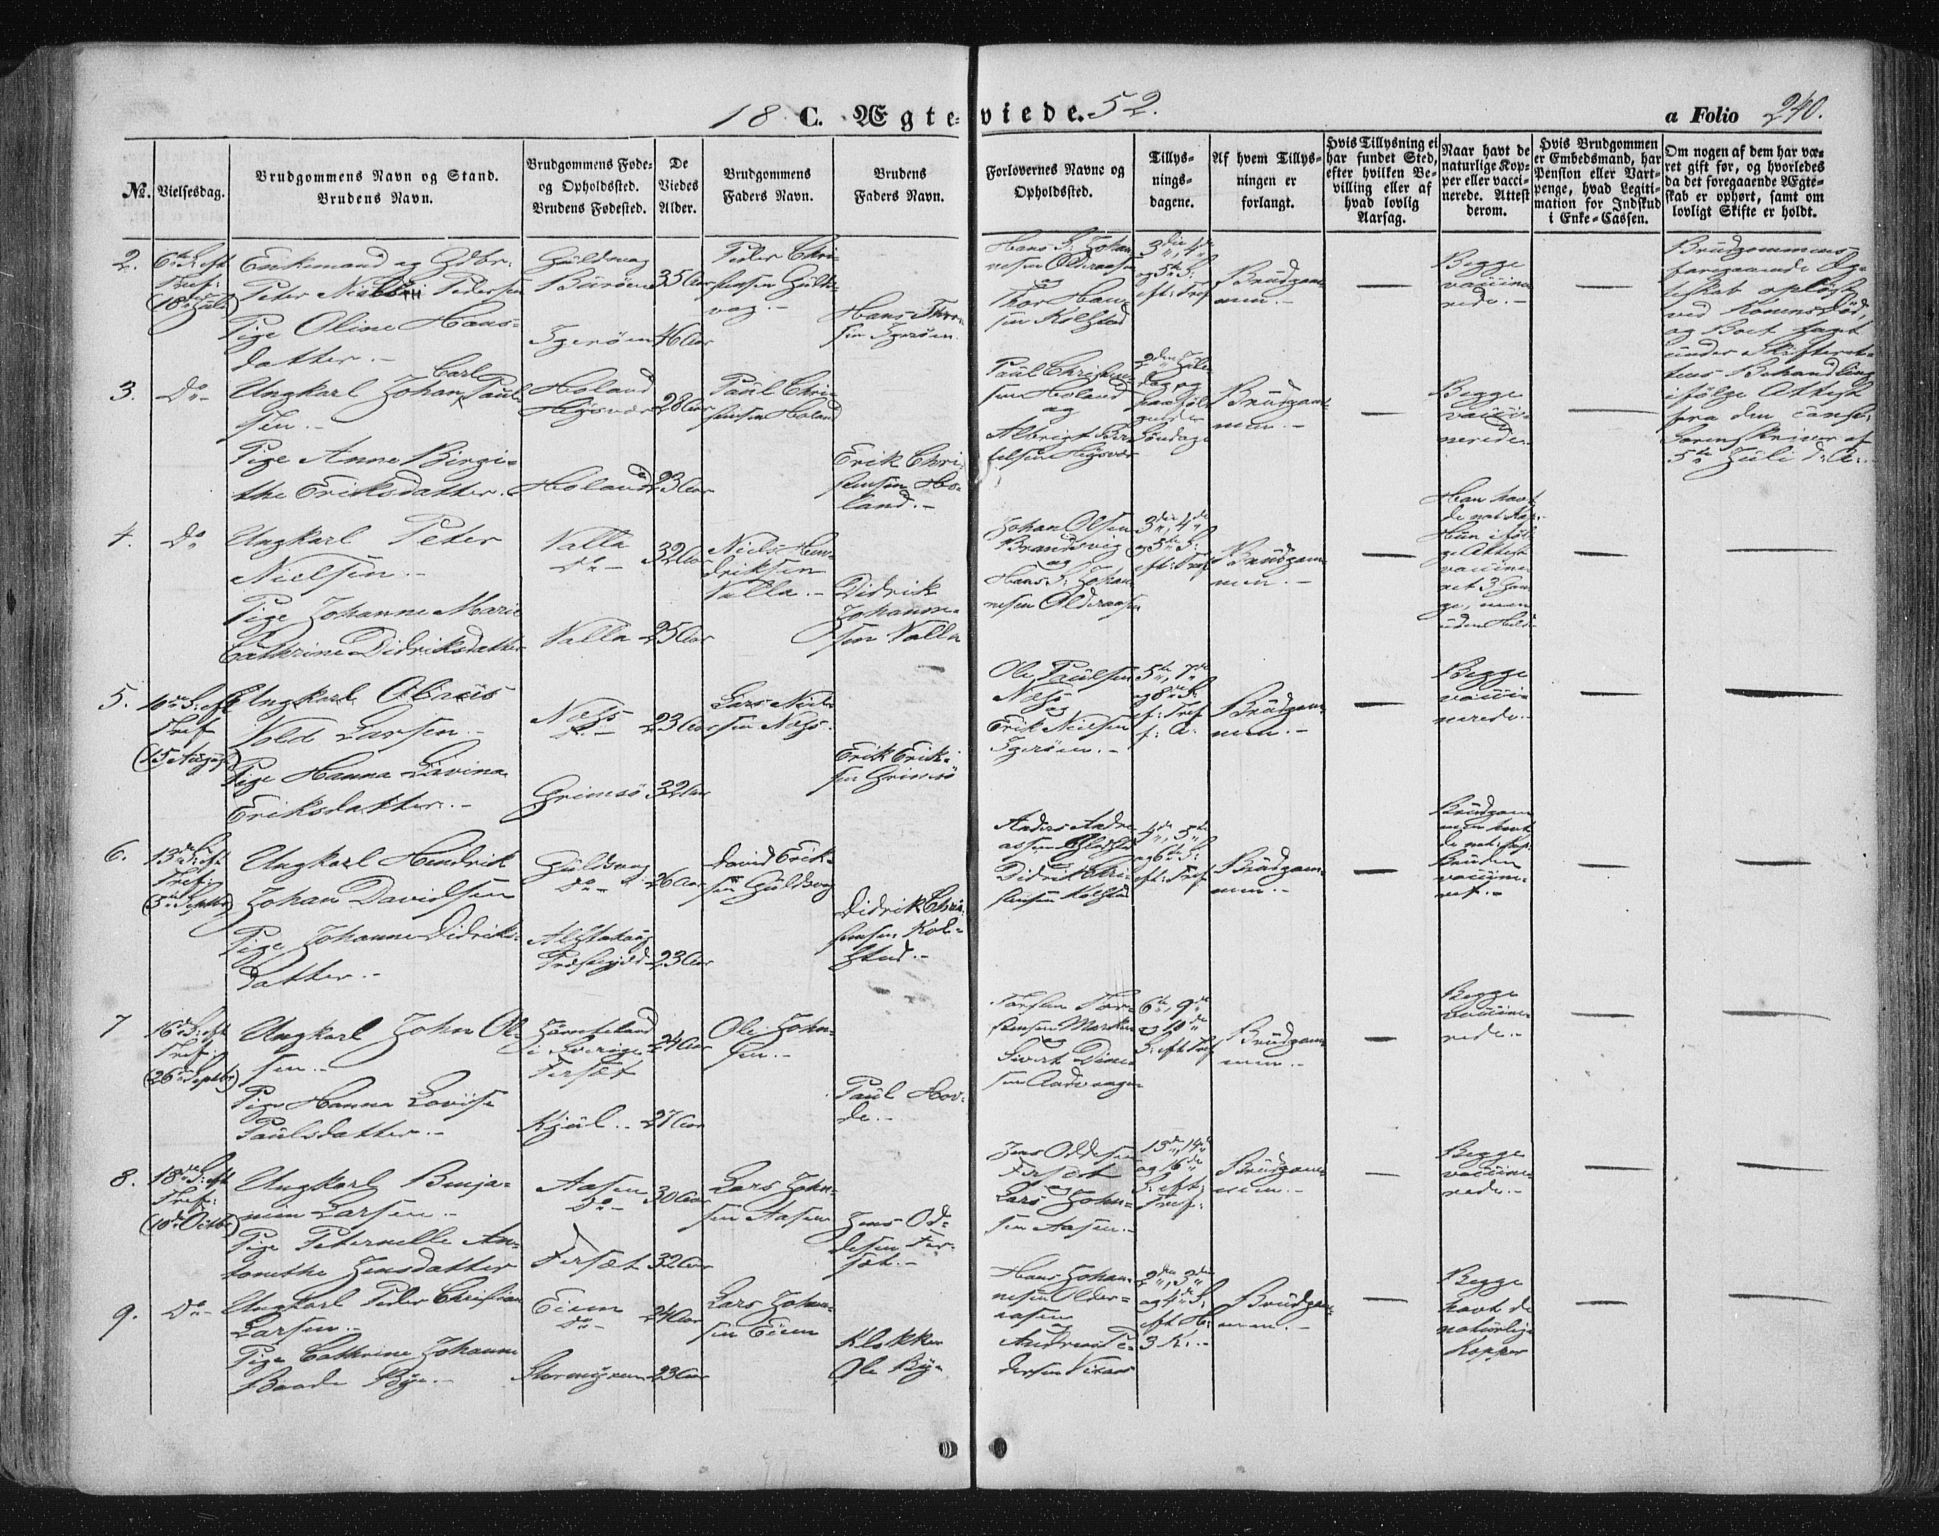 18 C. Ægte-viede. 52.
a Folio 240.
No.
Vielsesdag.
Brudgommens Navn og Stand.
Brudens Navn.
Brudgommens Føde-
og Opholdssted.
Brudens Fødested.
De
Viedes
Alder.
Brudgommens
Faders Navn.
Brudens
Faders Navn.
Forlovernes Navne og
Opholdssted.
Tillys-
nings-
dagene.
Af hvem Tillys-
ningen er
forlangt.
Hvis Tillysning ei
har fundet Sted,
efter hvilken Be-
villing eller af
hvad lovlig
Aarsag.
Naar havt de
naturlige Kop-
per eller vacci-
nerede. Attest
derom.
Hvis Brudgommen
er Embedsmand, har
Pension eller Vart-
penge, hvad Legiti-
mation for Indskud
i Enke-Cassen.
Om nogen af dem har væ-
ret gift før, og hvorledes
da det foregaaende Ægte-
skab er ophørt, samt om
lovligt Skifte er holdt.
2.
6te S. eft
Tref:
(18de Juli)
Enkemand og Gdbr.
Peter Pedersen
Pige Oline Hans-
datter.-
Guldvog
Burøen
Igerøen
35 Aar
46 Aar
Peder Chri-
stensen Guld-
vog.-
Hans
sen Igerøen.
Hans J. Johan-
nesen Olderaasen
og
Thor Han-
sen Kolstad
3die, 4de
og 5te S.
eft: Tref
Brudgom-
men.-
—
Begge
vaccine-
rede.-
Brudgommens
foregaaende Æg-
teskab opløst
ved Konens Død,
og Boet taget
under Skifteret-
tens Behandling
ifølge Attest
fra den const.
Sorenskriver af
5te Juli d: A:.-
3.
Do-
Ungkarl Johan Carl Paul-
sen.-
Pige Anne Birgi-
the Eriksdatter.
Høland
Høland
28 Aar
23 Aar
Paul Chri-
stensen Høland
Erik Chri-
stensen Hø-
land.-
Paul Christen-
sen Høland
og
Albrigt Ber-
telsen
2den Jule-
dag og
paafølg
Søndage
Brudgom-
men.-
—
Begge
vacci-
nerede.
—
4.
Do
Ungkarl Peter
Nielsen.-
Pige Johanne Marie
Cathrine Didriksdatter
Valla
Do-
Valla
32 Aar
25 Aar
Niels Hen-
driksen
Valla.-
Didrik
Johanne-
sen Valla
Johan Olsen
Brandsvig
og
Hans J. Johan-
nesen Olderaasen
3die, 4de
og 5te S.
eft: Tref
Brudgom-
men.-
—
Han havt
de nat. Kop.-
Hun iføl-
ge Attest
vaccine-
ret 3 Gan-
ge, men
uden Held
—
—
5.
10de S. eft
Tref
(15 August)
Ungkarl
Vold Larsen.-
Pige Hanna Lavina
Eriksdatter.-
Næss
Do-
Grimsø
23 Aar
32 Aar
Lars Niel-
sen Næss.
Erik Erik-
sen Grimsø
Ole Paulsen
Næss
og
Erik Nielsen
Igerøen.-
5te, 7de
og 8de S.
ef: Tref
f: A.
Brudgom-
men.-
—
Begge
vacci-
nerede.-
—
—
6.
13de S. eft
Tref.
(5te Septbr)
Ungkarl Hendrik
Johan Davidsen
Pige Johanne Didriks-
datter.-
Guldvog
Do-
Alstahaug
Præstegjeld
26 Aar
23 Aar
David Erik-
sen Guldvog
Didrik Chri-
stensen Kol-
stad.-
Anders Andre-
assen
Didrik Chri-
stensen Kolstad
4de, 5te
og 6te S.
eft: Tref
Brudgom-
men.-
—
Brudgom-
men havt
de nat. Kop.
Bruden
vaccine-
ret.-
—
—
7
16de S. eft
Tref.
(26de Septbr)
Ungkarl John Ol-
sen.-
Pige Hanna Lovise
Paulsdatter.-
Jæmteland
i Sverige
Forsæt
Kjul.-
24 Aar
27 Aar
Ole John-
sen.-
Paul Hov-
de.-
Torsten Tor-
stensen
og
Sivert
sen
6te, 9de
og 10de
S. eft Tref
Brudgom-
men.-
—
Begge
vaccine-
rede.-
—
—
8.
18de S. eft
Tref:
(10de Octbr)
Ungkarl Benja-
min Larsen.-
Pige Peternelle An-
tonethe Jensdatter
Aasen
Do-
Forsæt
30 Aar
32 Aar
Lars John-
sen Aasen
Jens Od-
desen For-
sæt.-
Jens Oddesen
Forsæt
og
Lars John-
sen Aasen.-
13de, 14de
og 16de
S. eft:
Tref.
Brudgom-
men.-
—
Begge
vaccine-
rede.-
—
—
9.
Do-
Ungkarl Peder Christian
Larsen.-
Pige Cathrine Johanne
Baade Bye.-
Eiem
Do-
24 Aar
23 Aar
Lars Johan-
sen Eiem
Klokker
Ole Bye
Hans Johan-
nesen Older-
aasen
og
Andreas Pe-
dersen
2den, 3die
og 4de S.
eft H:
3 K.-
Brudgom-
men.-
—
Begge
havt de
naturlige
Kopper
—
—